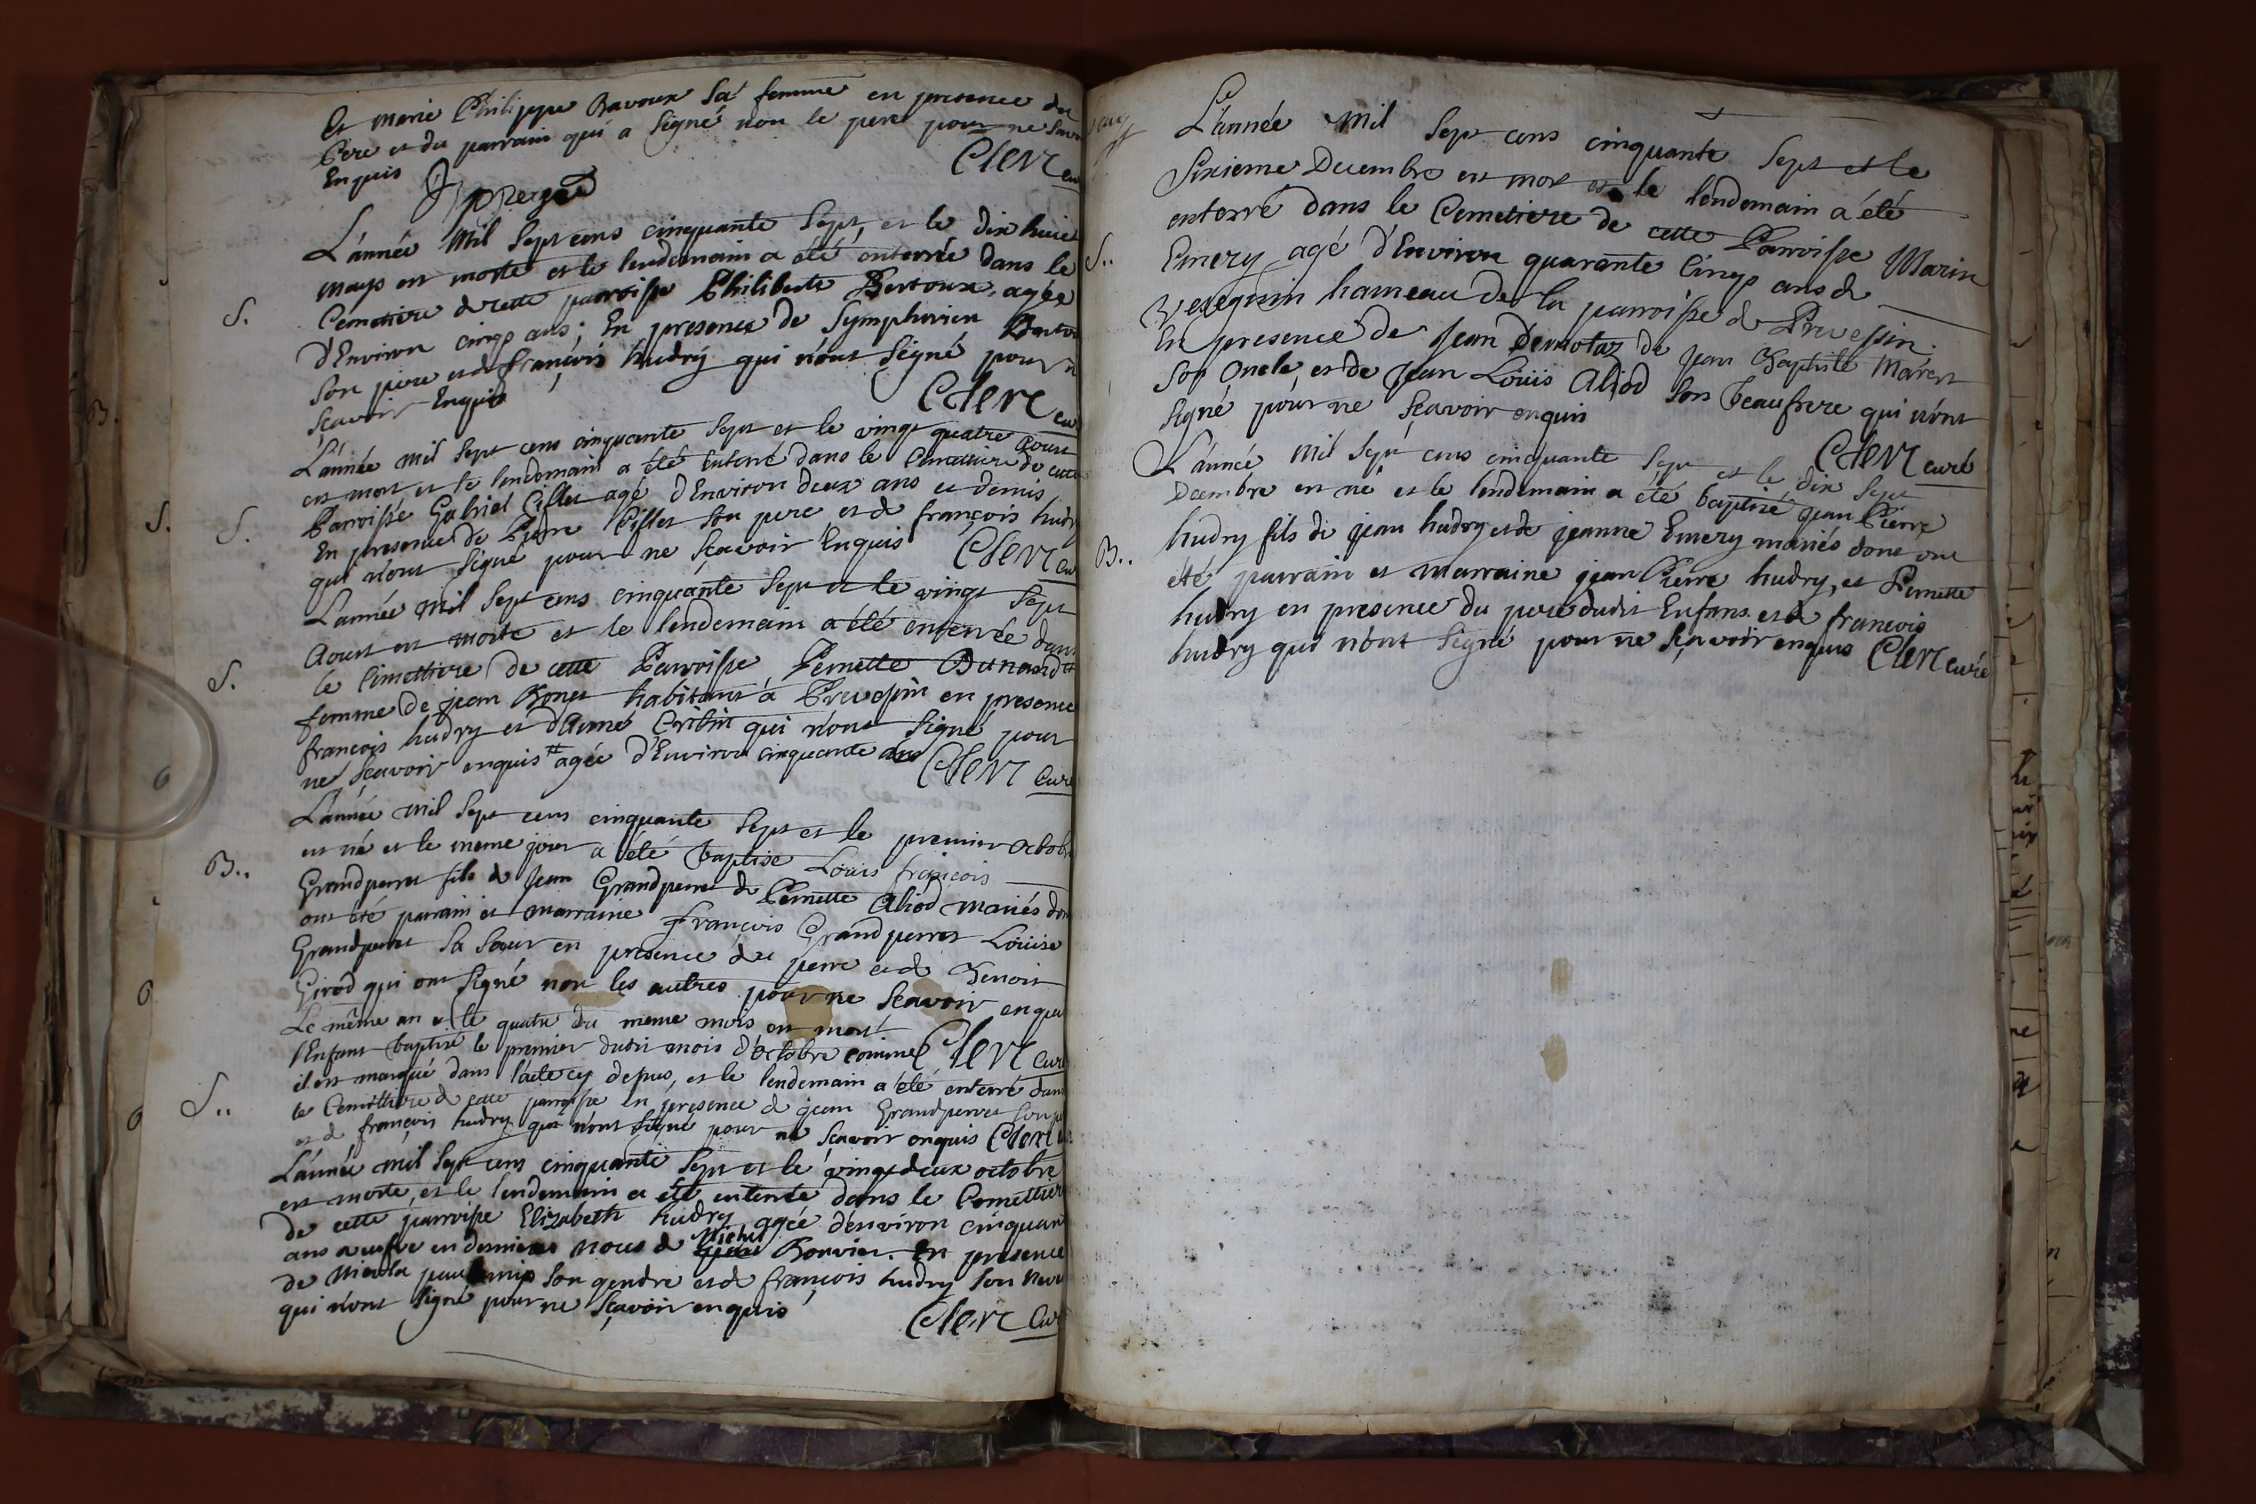 Et marie Philippe Bavoux Sa femme en presence du
Pere et du parrain qui a Signé non le pere pour ne Savoir
Enquis
Clerc cu
L'année Mil Sept cens cinquante Sept, et le dix huit
mays est morte et le lendemain a été enterrée dans le
S.
Cemettiere de cette parroisse Philiberte Bertoux, agée
d'Environ cinq ans; En presence de Symphorien Bertou
Son pere et de françois hudry qui n'ont Signé pour n
Sçavoir Enquis
Clerc cu
L'année Mil Sept cens cinquante Sept et le vingt quatre Aoust
est mort et le lendemain a été Enterré dans le Cimettiere de cette
S. S.
Parroisse Gabriel Gillet agé d'Environ deux ans et demis
En presence de Pierre Gillet Son pere et de françois hudr
qui n'ont Signé pour ne Sçavoir Enquis
Clerc cu
L'année Mil Sept cens cinquante Sept et le vingt Sept
Aoust est morte et le lendemain a été enterrée dans
S.
le Cimettiere de cette Parroisse Pernette
femme de jean Bonet habitant à Prevessin en presence
françois hudry et d'Aimé qui n'ont Signé pour
ne Sçavoir enquis # agée d'Environ cinquante ans
Clerc Curé
L'année Mil Sept cens cinquante Sept et le premier Octob
est né et le meme jour a été baptisé Louis françois
B..
Grandperret fils de Jean Grandperret de Pernette Aliod mariés don
ont été parrain et marraine François Grandperret Louise
Grandperret Sa Soeur en presence du pere et de Benoit
Girod qui ont Signé non les autres pour ne Sçavoir enqui
Clerc Curé
Le même an et le quatre du meme mois est mort
l'Enfant baptisé le premier dudit mois d'Octobre comme
il est marqué dans l'acte cy dessus, et le lendemain a été enterré dans
S..
le Cemettiere de cette parroisse en presence de jean Grandperret Son p
et de françois hudry qui n'ont Signé pour ne Scavoir enquis Clerc
L'année Mil Sept cens cinquante Sept et le vingt deux octobre
est morte, et le lendemain a été enterrée dans le Cemettiere
de cette parroisse Elizabeth hudry agée d'environ cinquan
ans veufve en dernieres noces de Michel Bonvier. En presence
de Nicolas Son gendre et de françois hudry Son neve
qui n'ont Signé pour ne Sçavoir enquis
Clerc Curé
L'année Mil Sept cens cinquante Sept et le
Sixieme Decembre est mort et le lendemain a été
enterré dans le Cemetiere de cette Parroisse Marin
S..
Emery agé d'Environ quarante Cinq ans de
Veseqnin hameau de la parroisse de Prevessin.
En presence de Jean Demotaz de Jean Baptiste Maret
Son Oncle, et de Jean Louis Aliod Son beaufrere qui n'ont
Signé pour ne Sçavoir enquis
Clerc curé
L'année Mil Sept cens cinquante Sept et le dix Sept
Decembre est né et le lendemain a été baptisé jean Pierre
hudry fils de jean hudry et de jeanne Emery mariés dont ont
B..
été parrain et marraine jean Pierre hudry, et Pernette
hudry en presence du pere dudit Enfans et de françois
hudry qui n'ont Signé pour ne Sçavoir enquis Clerc curé